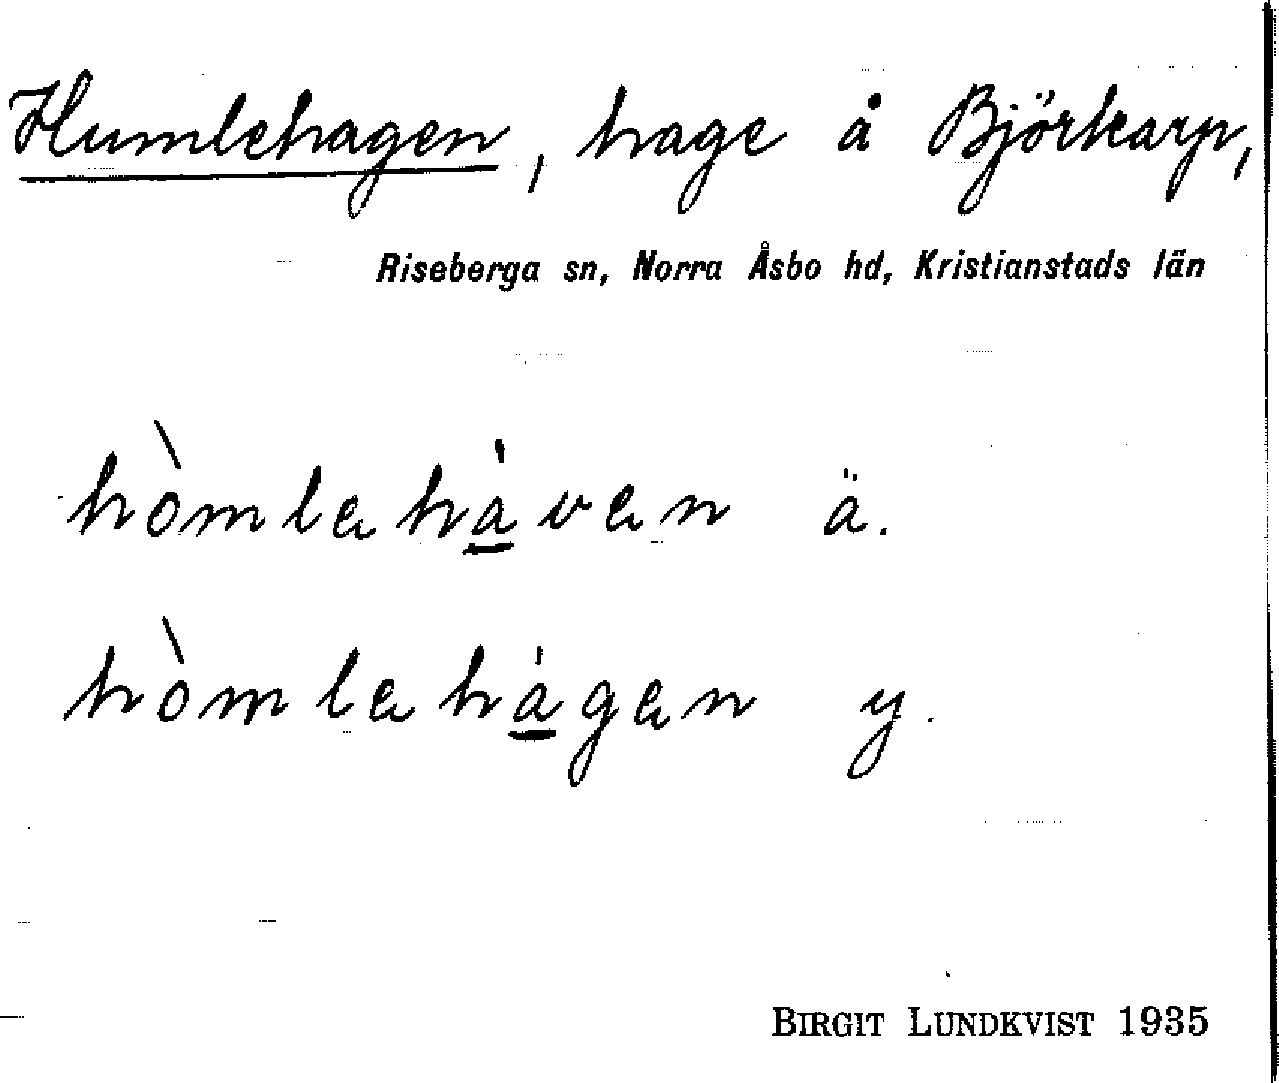 Humlehagen, hage å Björkarp,
Riseberga sn, Norra Åsbo hd, Kristianstads län
hòmleha̲ven ä.
hòmleha̲gen y.
BIRGIT LUNDKVIST 1935